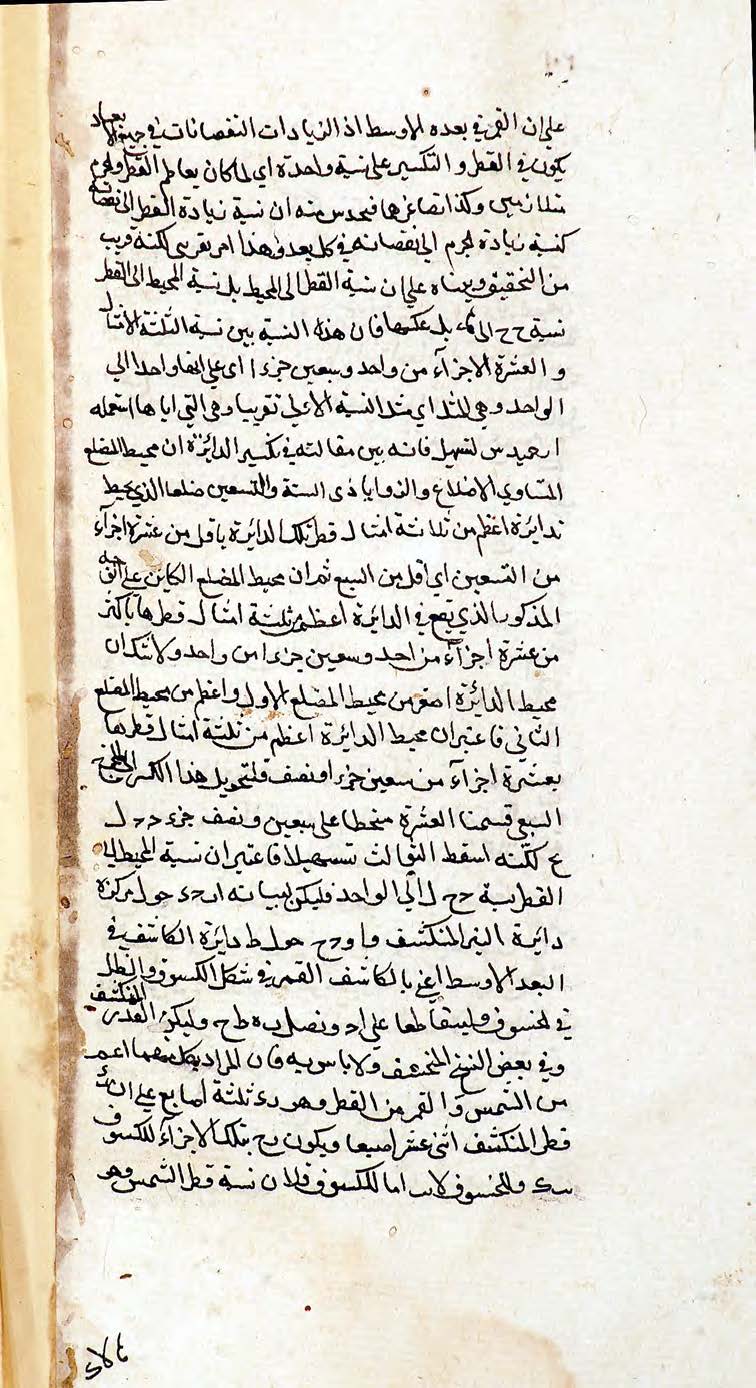 على ان القمر في بعده الاوسط اذ الزيادات النقصانات في جميع الابعاد
يكون في القطر و التكسير على نسبة واحدة اي لما كان يعاظم القطر والجرم
متلازمين وكذا تصاغرها فيحدس منه ان نسبة زيادة القطر الى نقصانه
كنسبة زيادة الجرم الى نقصانه في كل بعد وهذا امر تقريبي لكنه قريب
من التحقيق وبناه على ان نسبة القطر الى المحيط بل نسبة المحيط الى القطر
نسبة ح ح الى بل عكسها فان هذه النسبة بين نسبة الثلثة الامثال
و العشرة الاجزآء من واحد وسبعين جزءا اى على انها واحدا الي
الواحد وهي للمثل اي مثل النسبة الاولى تقريبا وهي التي اياها استعمله
ارحميدس لتسهيل فانه بين مقالته في تكسير الدائرة ان محيط المضلع
المتساوي الاضلاع والزوايا ذى الستة والتسعين ضلعا الذي يحيط
بدايرة اعظم من ثلاثة امثال قطر تلك الدايرة باقل من عشرة اجزآء
من السبعين اي اقل من السبع ثم ان محيط المضلع الكاين على
المذكور الذي يقع في الدايرة اعظم من ثلثة امثال قطرها باكثر
من عشرة اجزآء من احد وسبعين جزءا من واحد ولا شك ان
محيط الدايرة اصغر من محيط المضلع الاول واعظم من محيط المضلع
الثاني فاعتبر ان محيط الدايرة اعظم من ثلثة امثال قطرها
بعشرة اجزآء من سبعين جزء او نصف فلتحويل هذا الكسر الى
السبعي قسمنا العشرة منحطا على سبعين ونصف جزء ح ل
ع لكنه اسقط الثوالث تسهيلا فاعتبر ان نسبة المحيط الى
القطر نسبة ح ح ل الى الواحد فليكن لبيانه ا ب ح د حول مركز ه
دايرة النير المنكشف و ا و ح ح حول ط دايرة الكاشف في
البعد الاوسط اعني بالكاشف القمر في شكل الكسوف والظل
في الخسوف وليتقاطعا على ا ح ونصل ب ه ط ح وليكن القدر المنكشف
وفي بعض النسخ المنخسف ولا باس به فان المراد بكل منهما اعم
من الشمس و القمر من القطر وهو د ع ثلثة اصابع على ان
قطر المنكشف اثنى عشر اصبعا ويكون بتلك الاجزآء للكسوف
وللخسوف اما للكسوف فلان نسبة قطر الشمس وهو